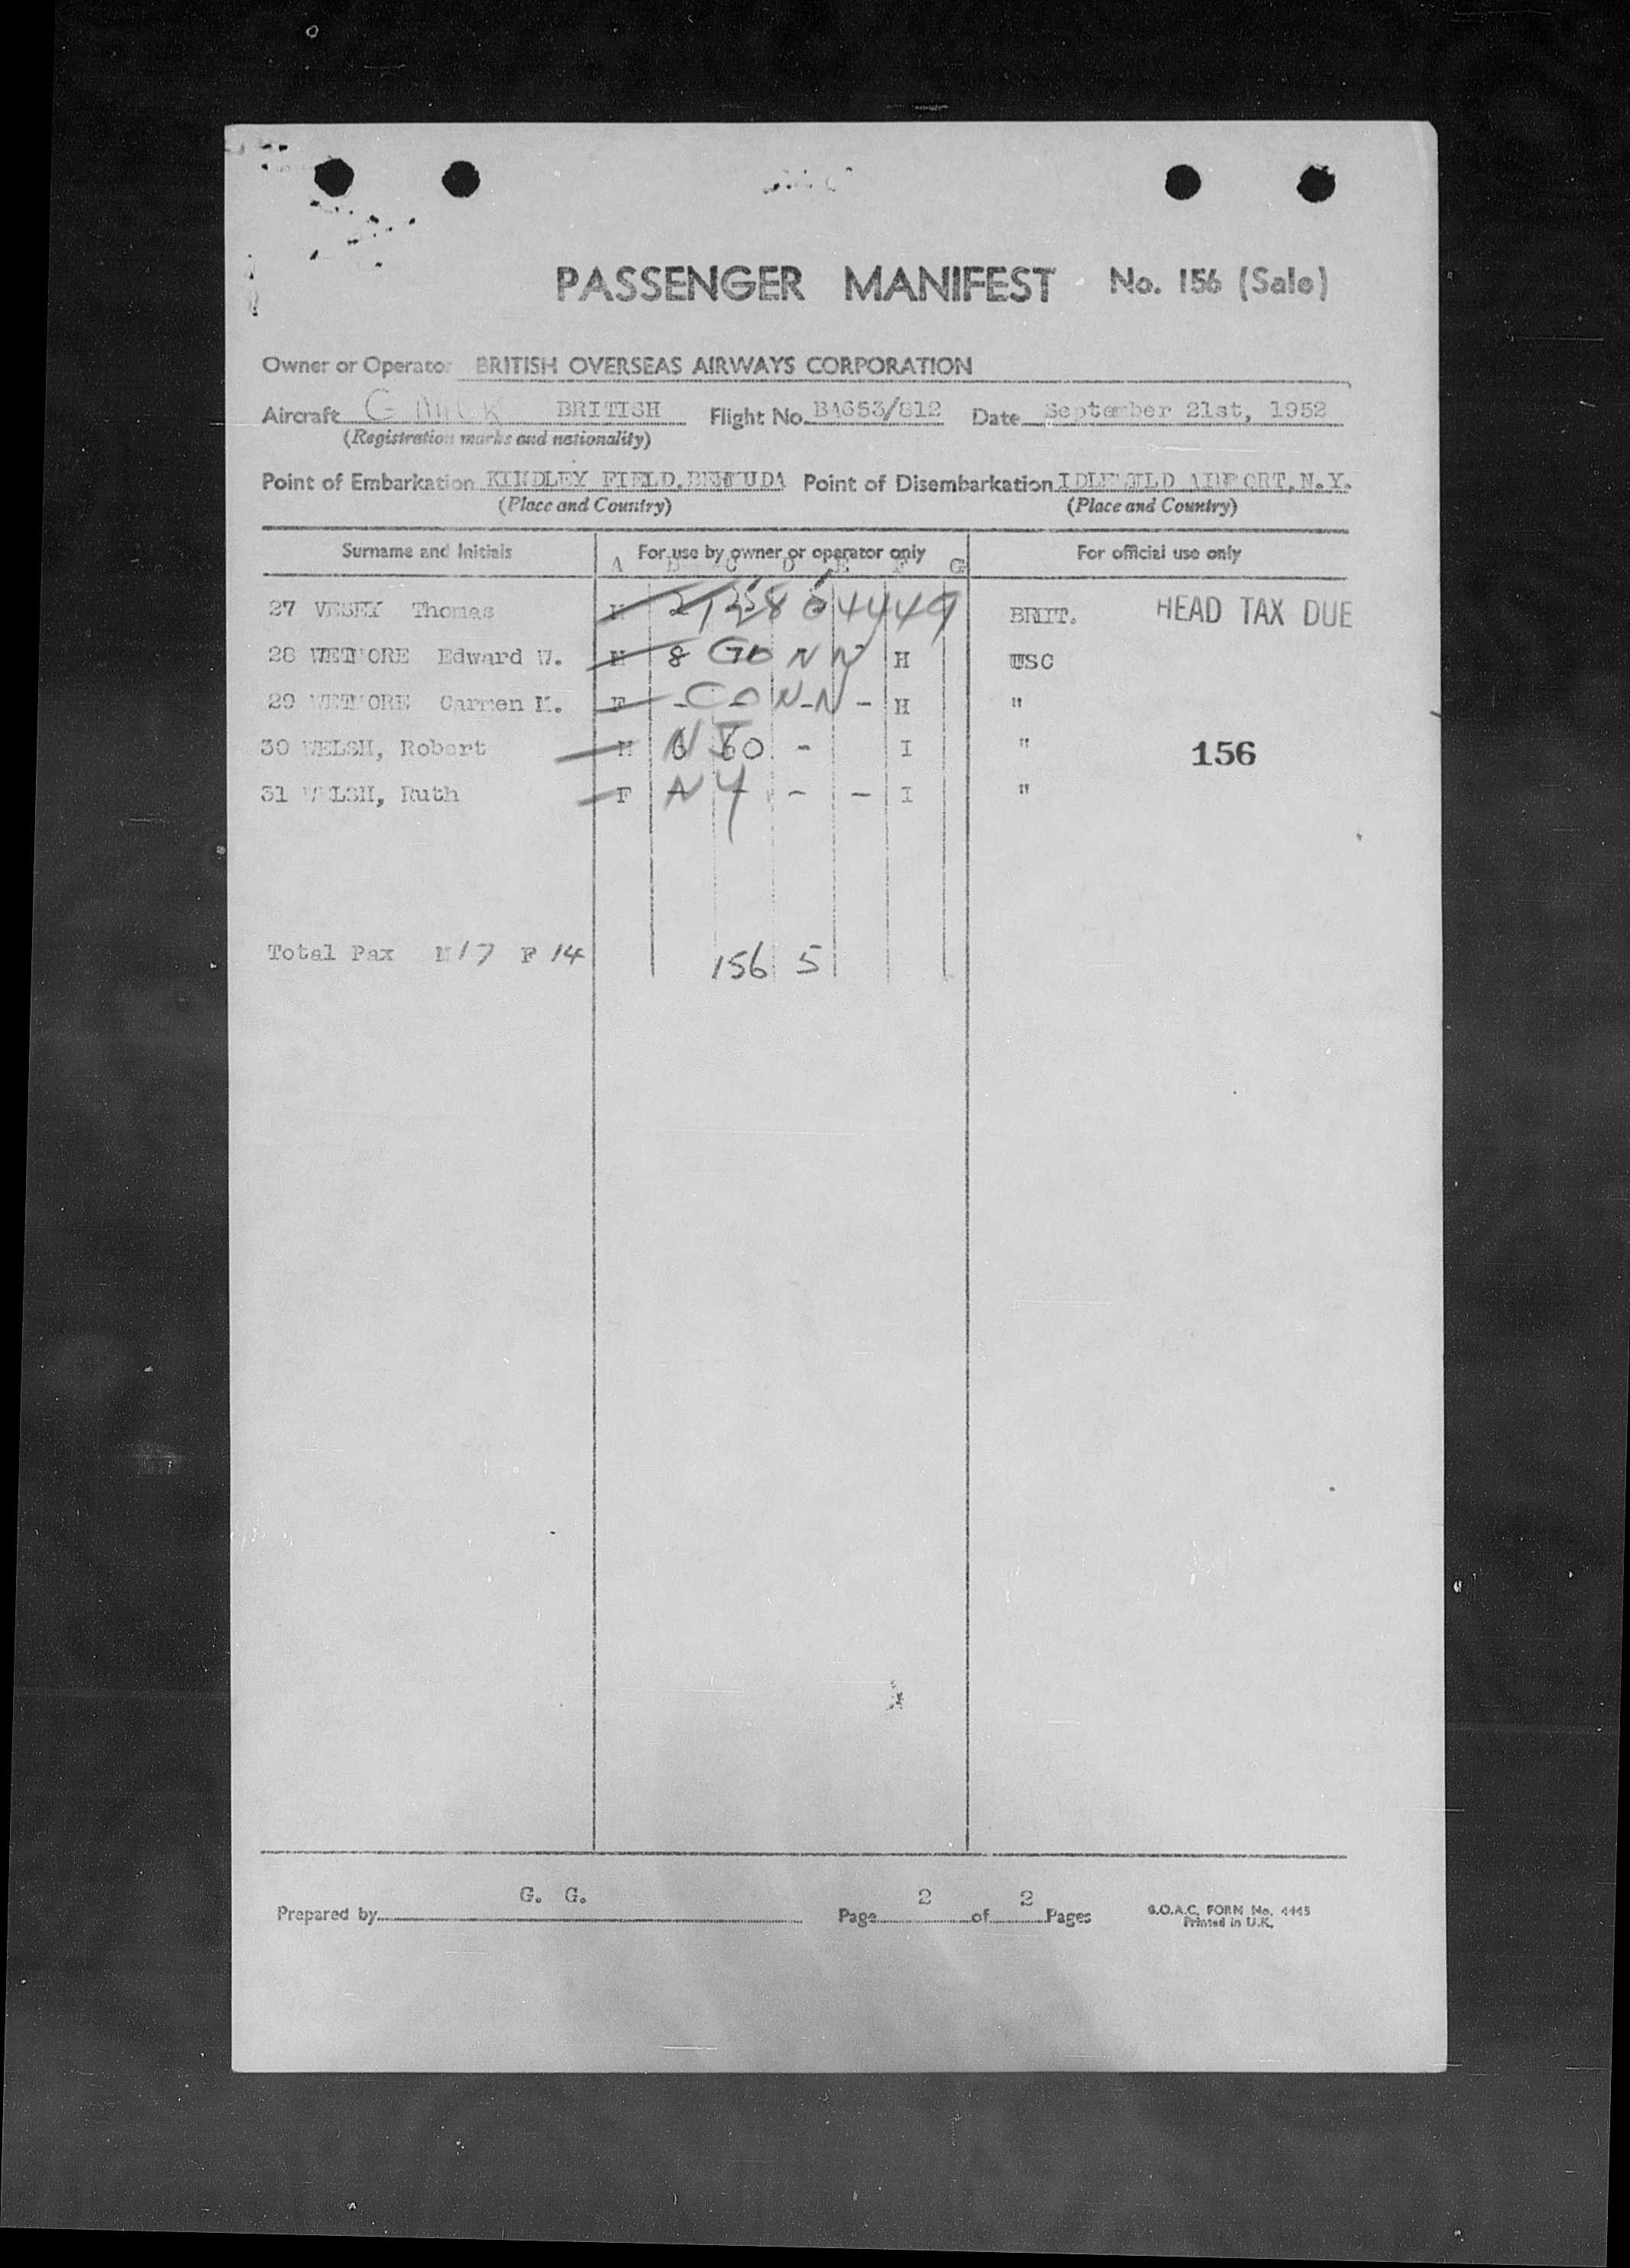 PASSENGER MANIFEST No. 156 (Sale)
Owner or Operator BRITISH OVERSEAS AIRWAYS CORPORATION
Aircraft BRITISH Flight No. BA653/812 Date September 21st, 1952
(Registration marks and nationality)
Point of Embarkation KINDLEY FIELD, BERMUDA Point of Disembarkation IDLEWILD AIRPORT, N.Y.
(Place and Country) (Place and Country)
Surname and Initials For use by owner or operator only For official use only
A B C D E F G
27 VESEY Thomas M BRIT. HEAD TAX DUE
28 WETMORE Edward W. M 8 CONN H USC
29 WETMORE Carmen M. F - CONN - H "
30 WELSH, Robert M 6 NY 60 - I " 156
31 WELSH, Ruth F NY - - I "
Total Pax M 17 F 14 156 5
Prepared by G. G. Page 2 of 2 Pages
B.O.A.C. FORM No. 4445
Printed in U.K.